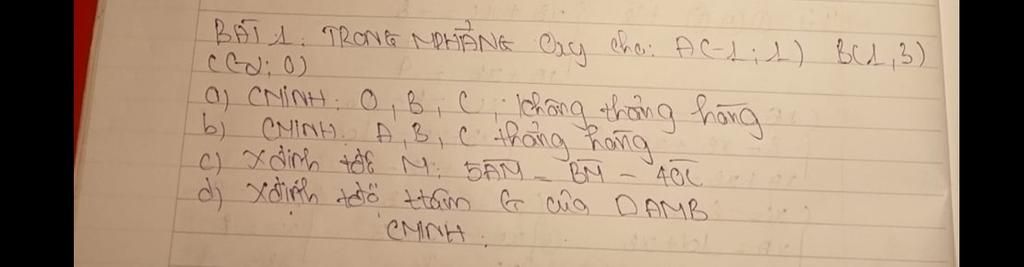 BÀI 1: TRONG MPHẲNG Oxy cho: A(-1; 1) B(1, 3)
C(-2; 0)
a) CMINH: O, B, C, không thẳng hàng
b) CMINH: A, B, C thẳng hàng
c) Xđịnh tđộ M: 5AM - BM - 4OC
d) Xđịnh tđộ ttâm G của DAMB
CMNH.